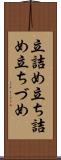 立詰め立ち詰
め立ちづめ